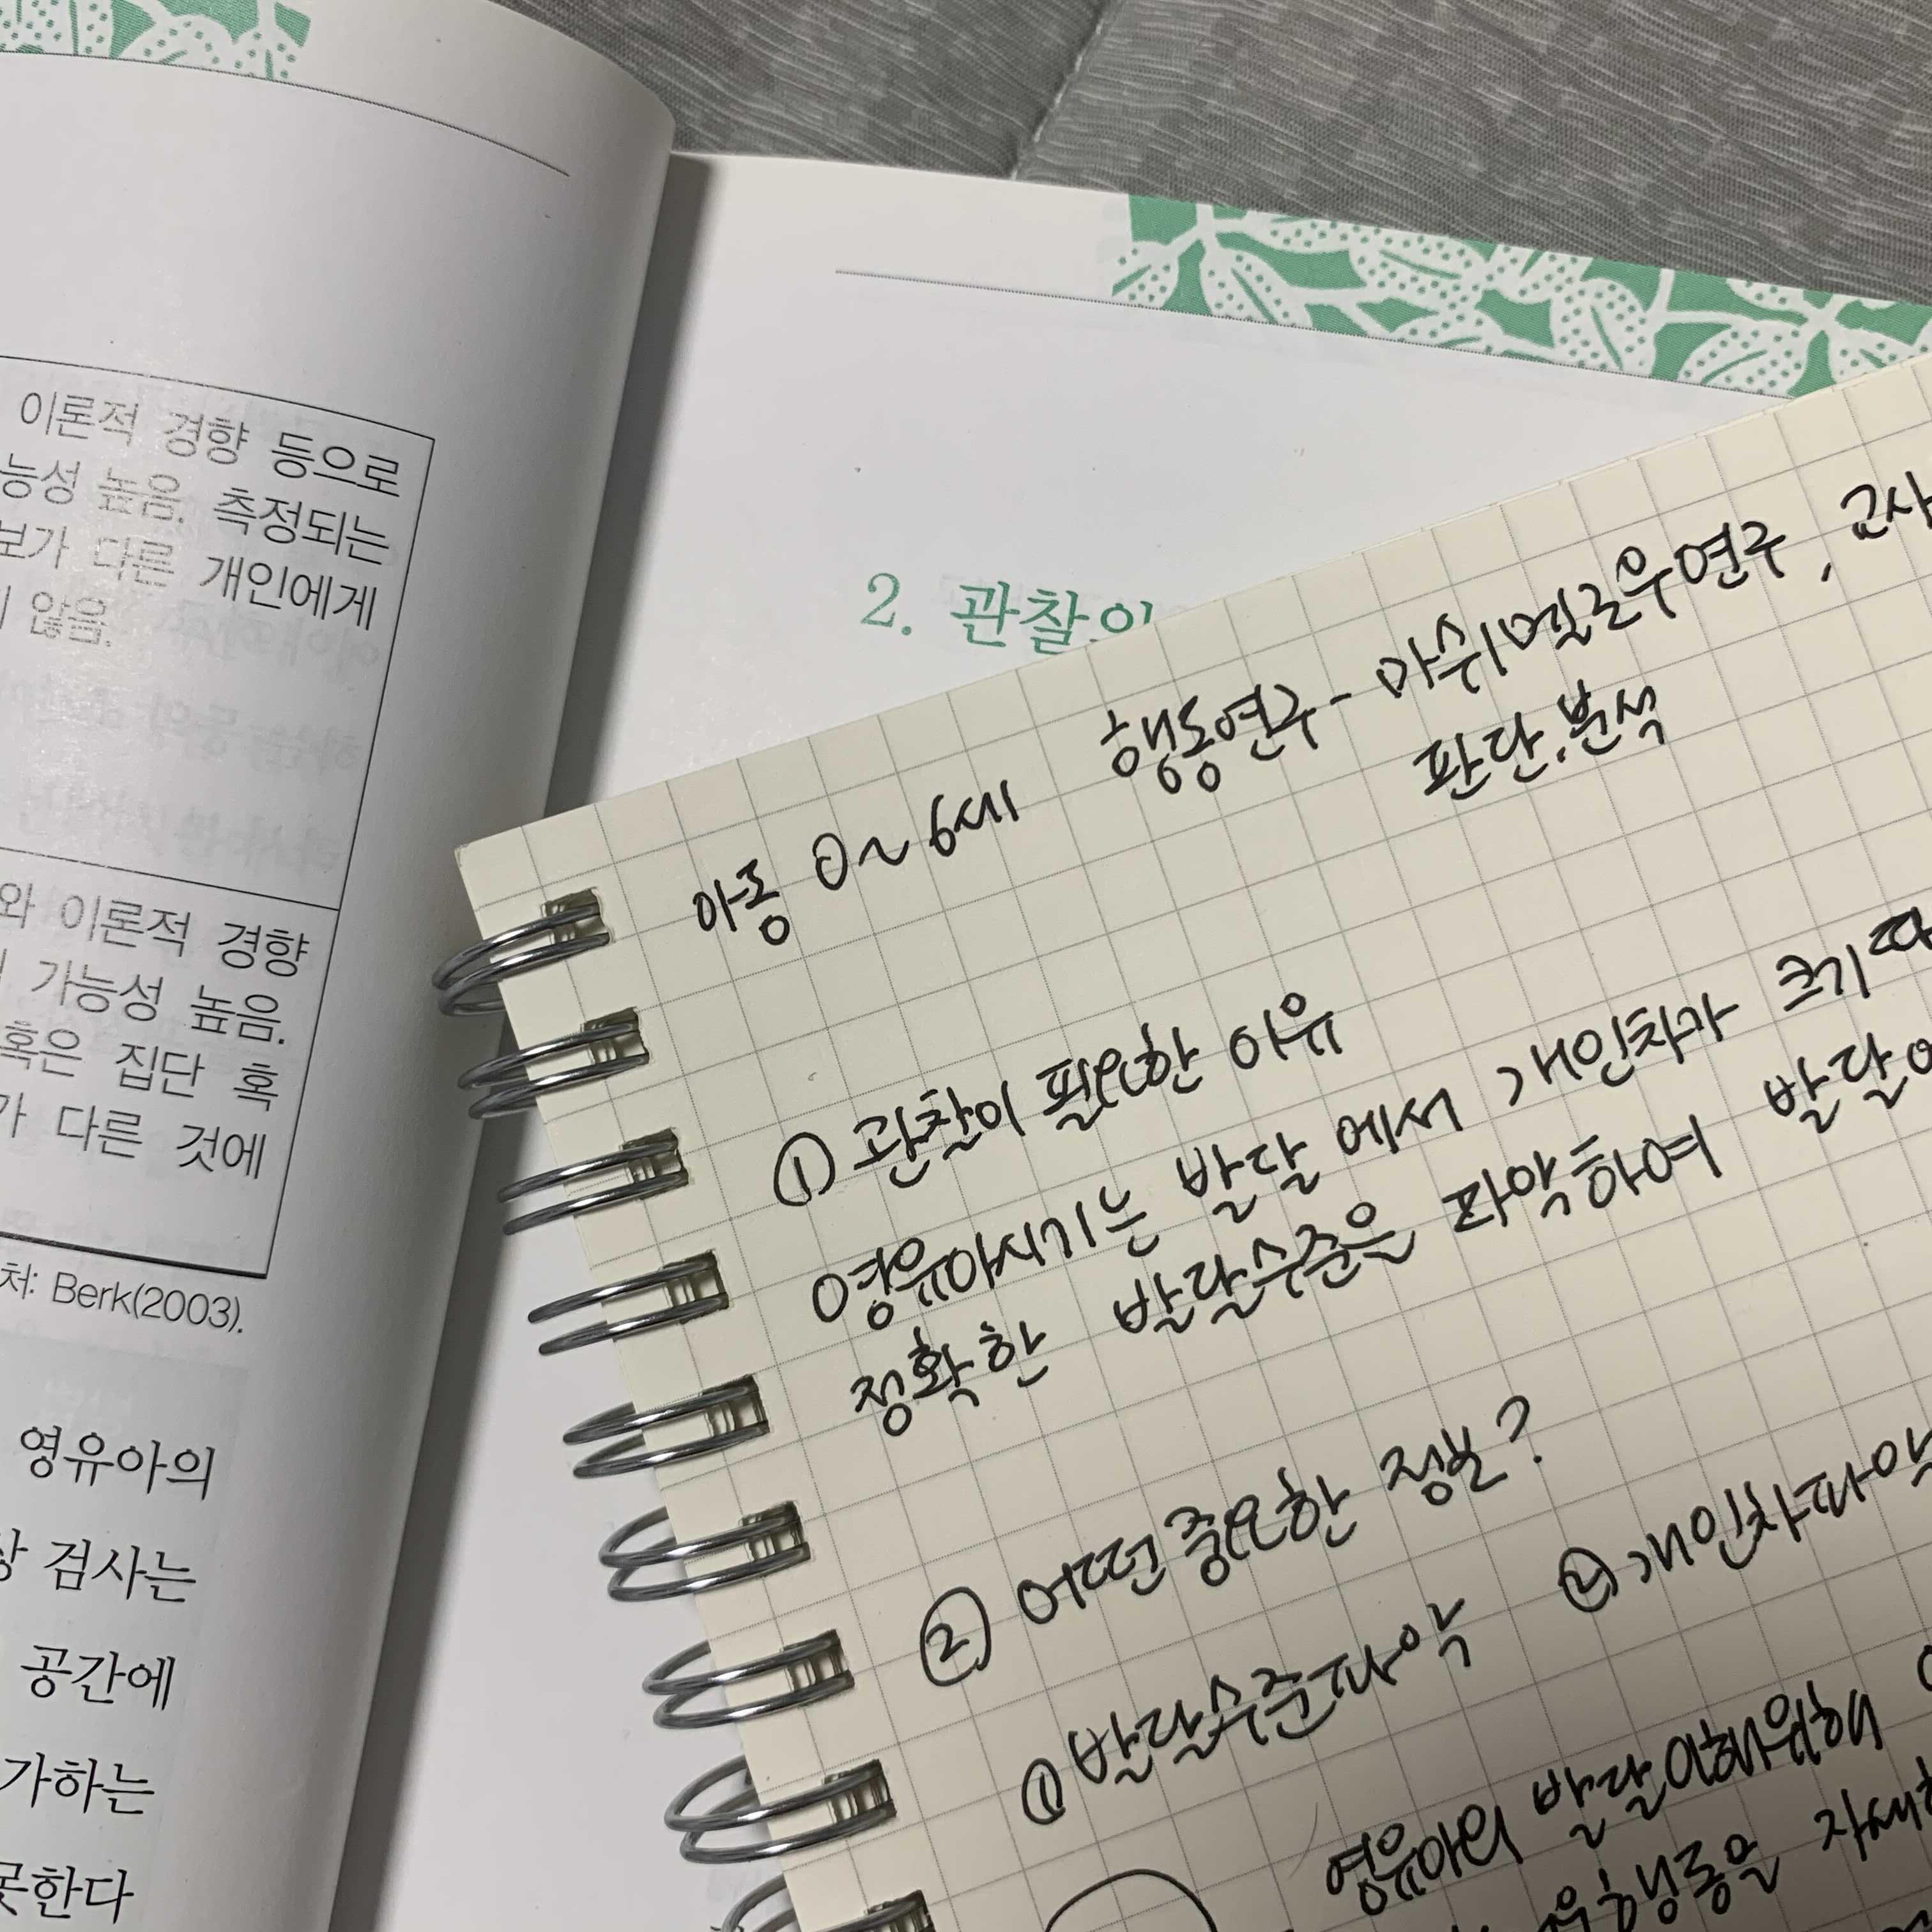 이론적 경향 등으로
능성 높음. 측정되는
보가 다른 개인에게
않음.
와 이론적 경향
가능성 높음.
혹은 집단 혹
가 다른 것에
처: Berk(2003).
영유아의
상 검사는
공간에
가하는
못한다
2. 관찰의
아동 0~6세 행동연구-마쉬멜로우연구, 교사
판단.분석
① 관찰이 필요한 이유
영유아시기는 발달에서 개인차가 크기때
정확한 발달수준을 파악하여 발달에
② 어떤 중요한 정보?
① 발달수준파악 ② 개인차파악
영유아의 발달이해위해
행동을 자세히